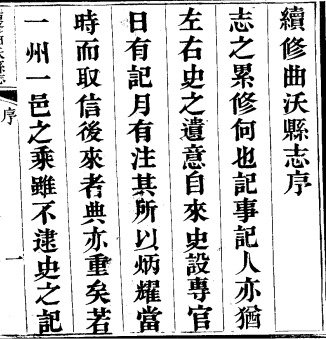 續修曲沃縣志序
志之累修何也記事記人亦猶
左右史之遺意自來史設專官
日有記月有注其所以炳耀當
時而取信後來者典亦重矣若
一州一邑之乘雖不逮史之記
序
一